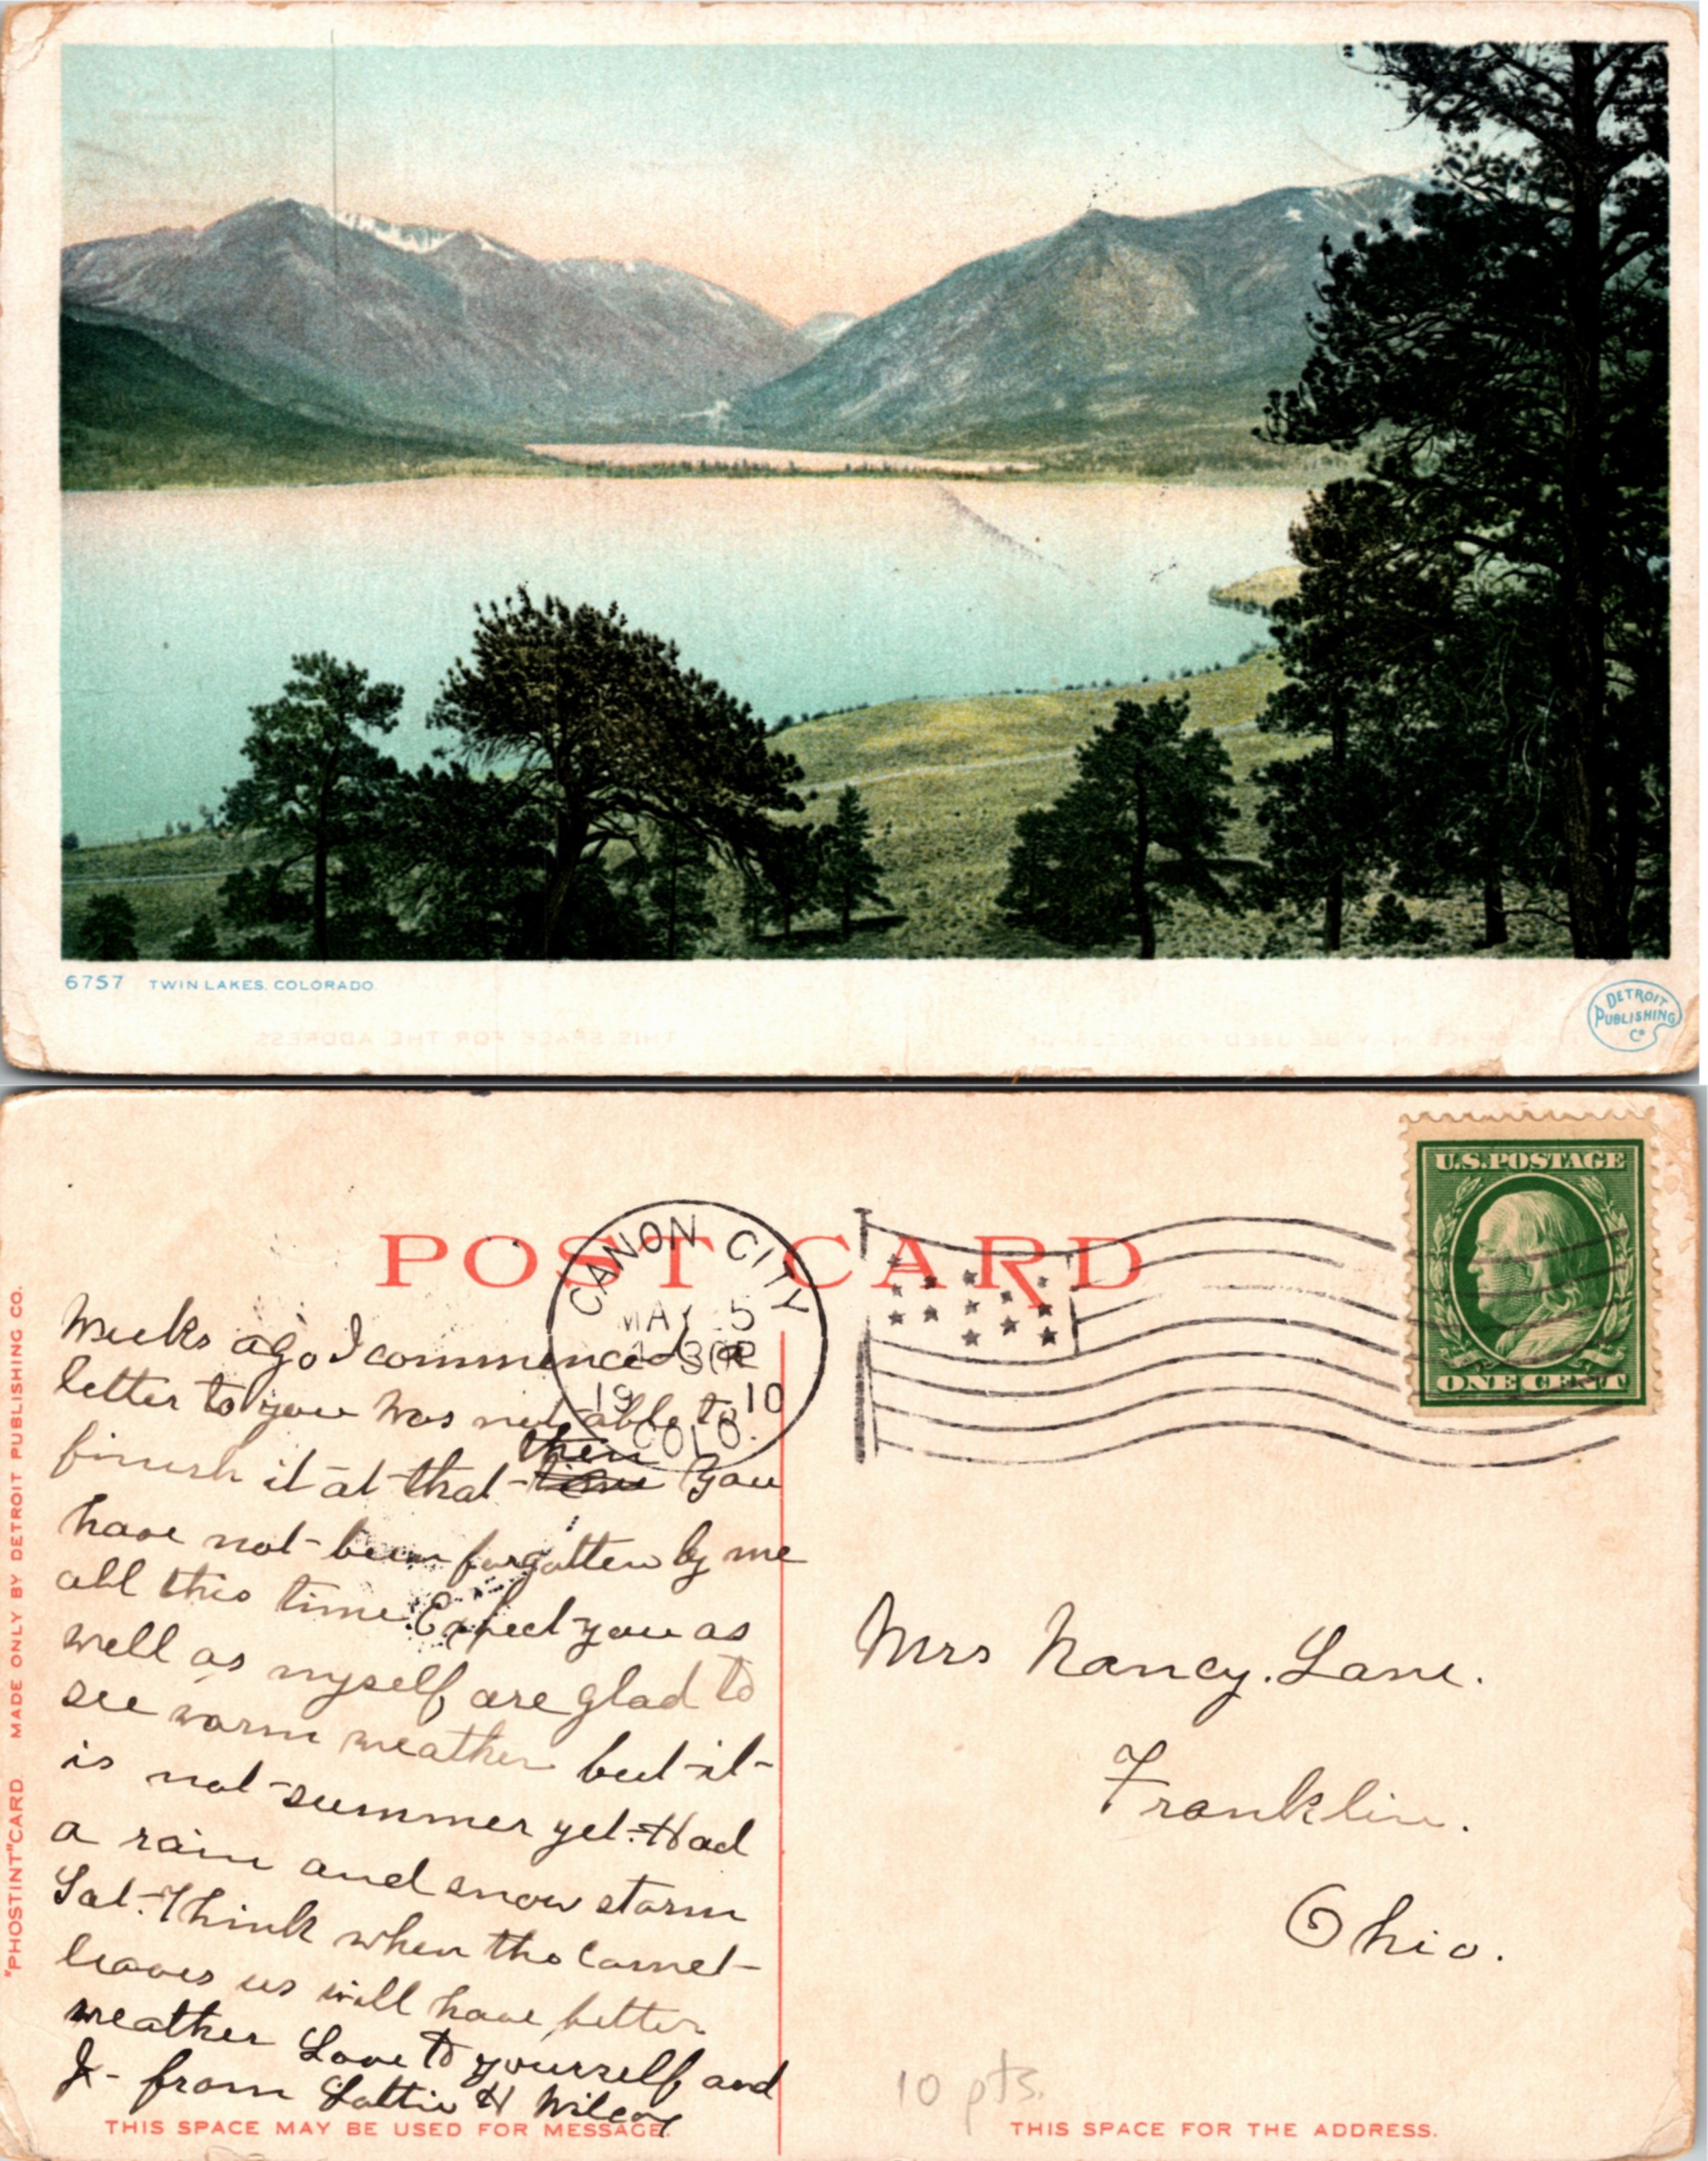 6757 TWIN LAKES, COLORADO.
DETROIT
PUBLISHING
Co
POST CARD
CANON CITY
MAY 5
1 30 P
19 10
COLO.
U.S. POSTAGE
ONE CENT
Weeks ago I commenced a
letter to you was not able to
finish it at that then You
have not been forgotten by me
all this time. Expect you as
well as myself are glad to
see warm weather but it
is not summer yet. Had
a rain and snow storm
Sat. Think when the Comet
leaves us will have better
weather Love to yourself and
from Lottie H Wilcox
Mrs Nancy. Lane.
Franklin.
Ohio.
10 pts.
"PHOSTINT" CARD. MADE ONLY BY DETROIT PUBLISHING CO.
THIS SPACE MAY BE USED FOR MESSAGE.
THIS SPACE FOR THE ADDRESS.